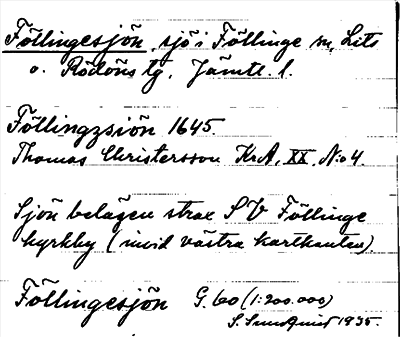 Föllingesjön, sjö i Föllinge sn, Lits
o. Rödöns tg, Jämtl. l.
Föllingzsiön 1645.
Thomas Christersson KrA, XX, N:o 4.
Sjön belägen strax SV Föllinge
kyrkby (invid västra kartkanten).
Föllingesjön G. 60 (1:200.000)
S. Sundquist 1935.